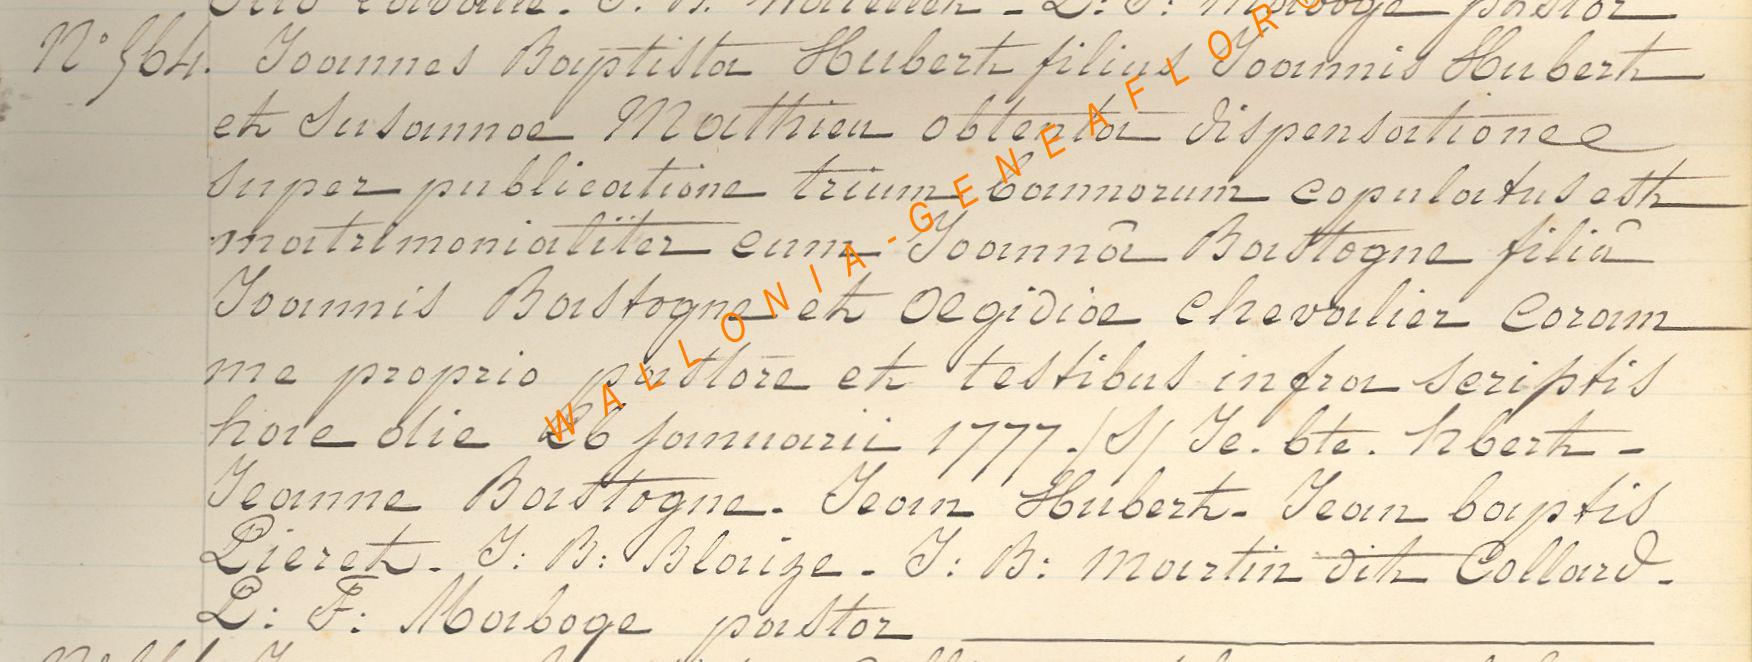 L: F: Maboge pastor
N° 564. Joannes Baptista Hubert filius Joannis Hubert
et Susannoe Mathieu obtenta dispensatione
super publicatione trium bannorum copulatus est
matrimonialiter cum Joannâ Bastogne filiâ
Joannis Bastogne et Oegidioe chevalier coram
me proprio pastore et testibus infra scriptis
hac die 26 januarii 1777. /S/ Je. bte. hbert -
Jeanne Bastogne. Jean Hubert. Jean baptis
Pieret. J: B: Blaize. J: B: Martin dit Collard.
L: F: Maboge pastor
WALLONIA-GENEAFLOR